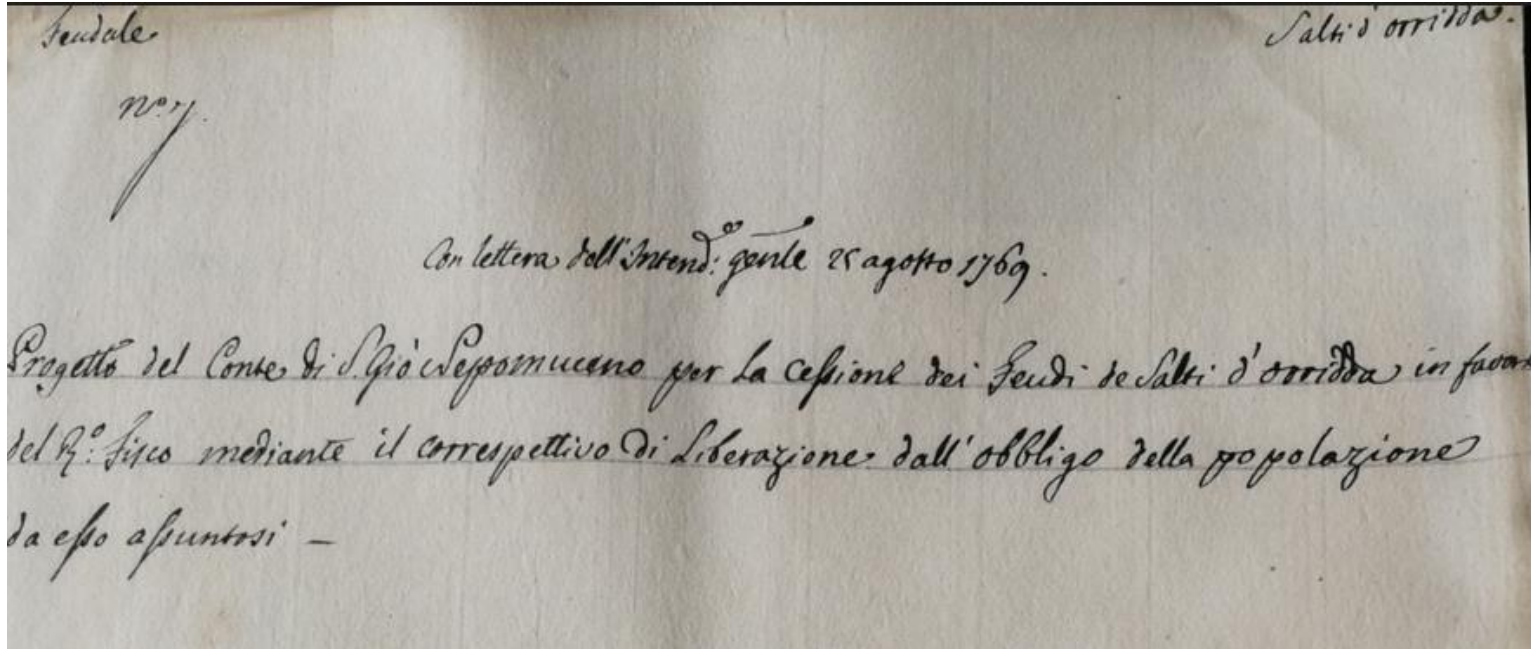 Feudale
Salti d'orridda.
N.° 7.
Con lettera dell'Intend.e gen̄le 25 agosto 1769.
Progetto del Conte di S. Giò Nepomuceno per la cessione dei Feudi de Salti d'orridda in favore
del R.° Fisco mediante il correspettivo di Liberazione dall'obbligo della popolazione
da esso assuntosi —